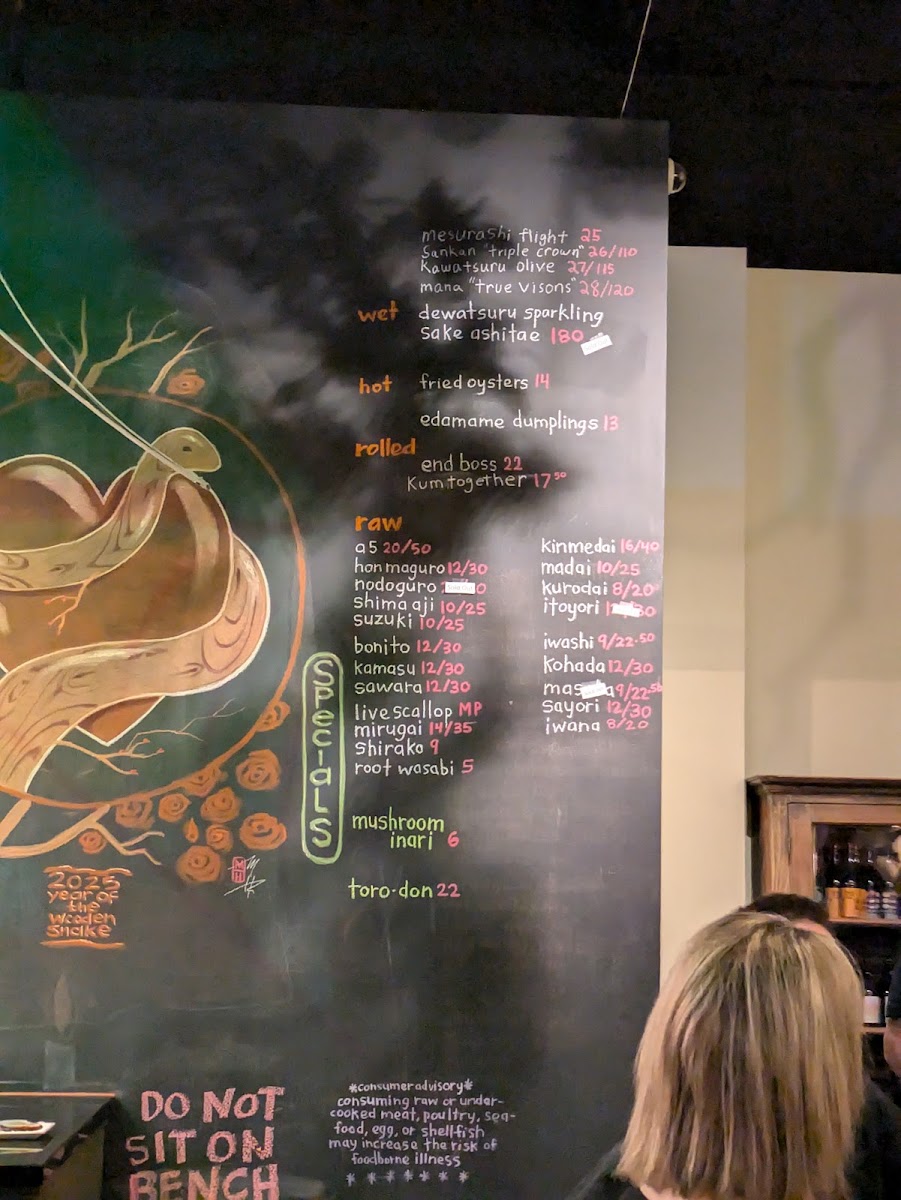 mesurashi flight 25
Sankan "triple crown" 26/110
Kawatsuru olive 27/115
mana "true visons" 28/120
wet dewatsuru sparkling
sake ashitae 180
hot fried oysters 14
edamame dumplings 13
rolled
end boss 22
Kumtogether 17.50
raw
a5 20/50
hon maguro 12/30
nodoguro
shima aji 10/25
suzuki 10/25
bonito 12/30
kamasu 12/30
sawara 12/30
live scallop MP
mirugai 14/35
shirako 9
root wasabi 5
kinmedai 16/40
madai 10/25
kurodai 8/20
itoyori
iwashi 9/22.50
kohada 12/30
9/22.50
sayori 12/30
iwana 8/20
Specials
mushroom
inari 6
toro-don 22
2025
year of
the
wooden
snake
DO NOT
SIT ON
BENCH
*consumer advisory*
consuming raw or under-
cooked meat, poultry, sea-
food, egg, or shellfish
may increase the risk of
foodborne illness
* * * * * * *